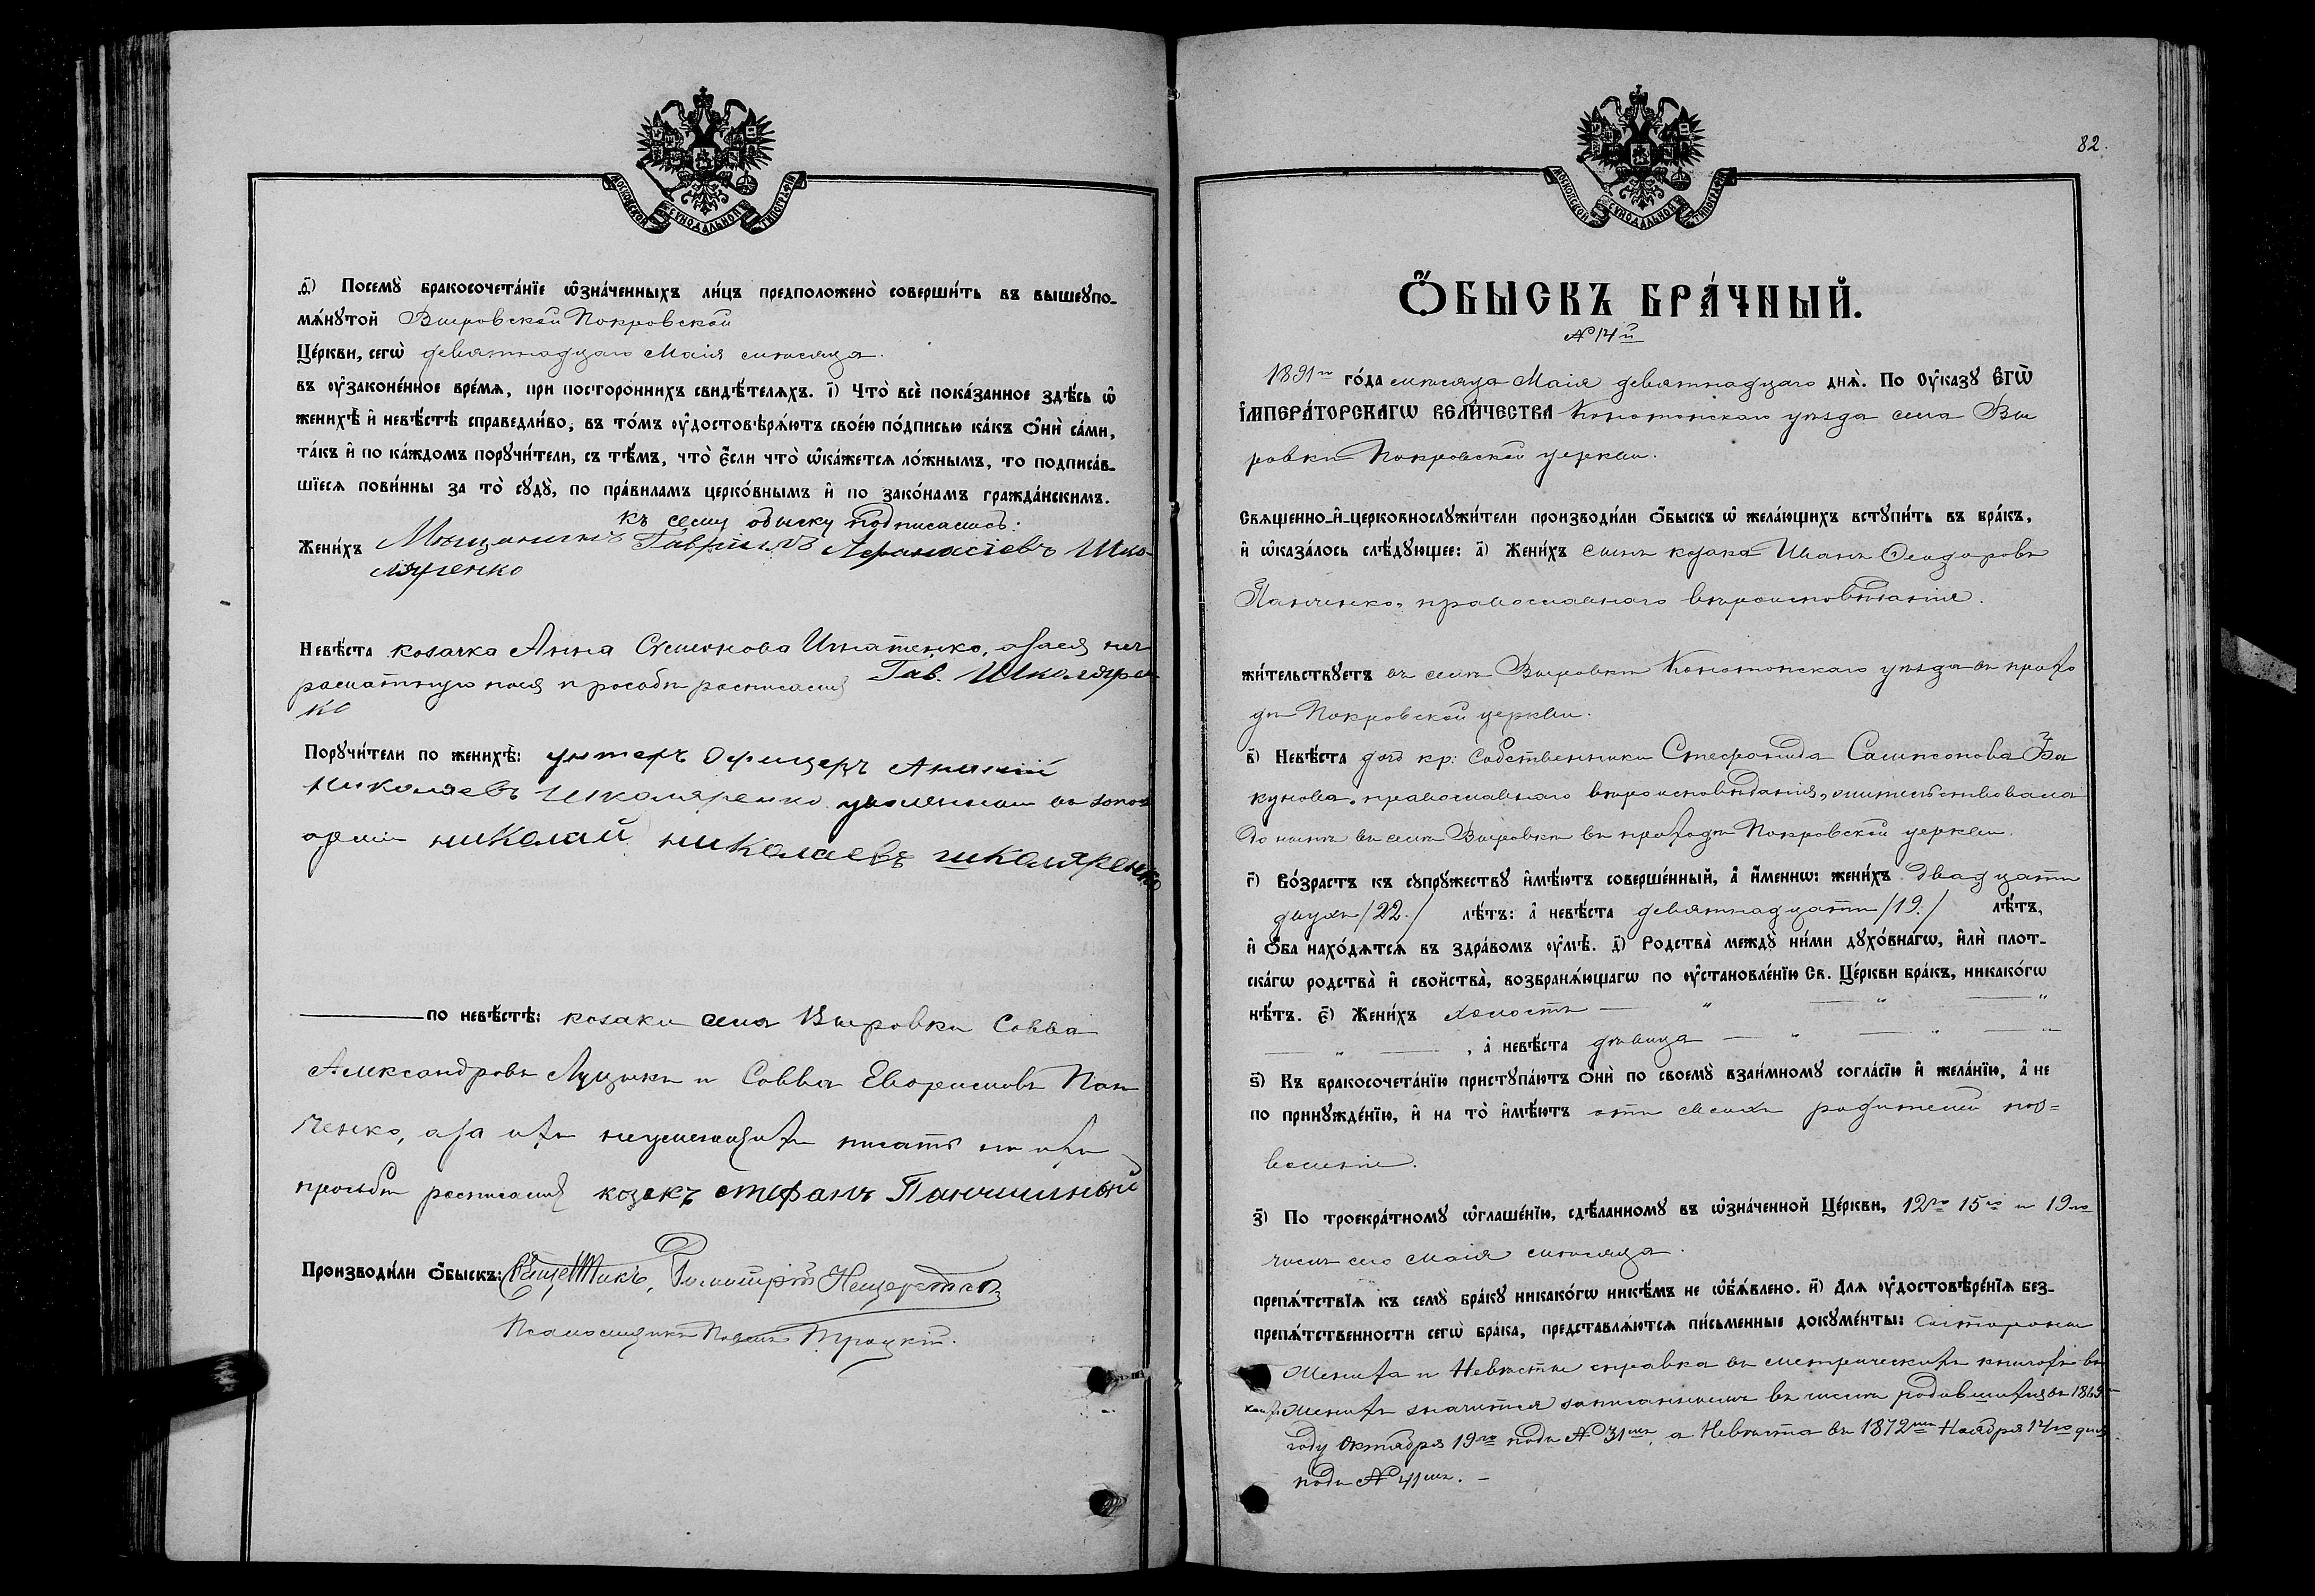 МОСКОВСКОЙ СѴНОДАЛЬНОЙ ТИПОГРАФІИ
ѳ҃) Посемꙋ̀ бракосочета́нїе ѡ҆зна́ченныхъ ли́цъ предположено̀ соверши́ть въ вышеꙋпо-
мѧ́нꙋтой Выровской Покровской
Це́ркви, сегѡ̀ девятнадцаго Маія мѣсяца.
въ ᲂу҆законе́нное вре́мѧ, при постороннихъ свидѣ́телѧхъ. і҃) Что̀ всѐ пока́занное здѣ́сь ѡ҆
женихѣ̀ и҆ невѣ́стѣ справедли́во, въ то́мъ ᲂу҆достовѣрѧ́ютъ свое́ю по́дписью ка́къ ѻ҆нѝ са́ми,
та́къ и҆ по ка́ждомъ порꙋчи́тели, съ тѣ́мъ, что̀ є҆́сли что̀ ѡ҆ка́жетсѧ ло́жнымъ, то подписа́в-
шїесѧ пови́нны за то̀ сꙋдꙋ̀, по пра́виламъ церко́внымъ и҆ по зако́намъ гражда́нскимъ.
къ сему обыску подписались:
Жени́хъ Мѣщанинъ Гавріилъ Афанасіевъ Шко
ляренко
Невѣ́ста козачка Анна Семенова Игнатенко, а за нея не
грамотную по ея просьбѣ росписался Гав. Школярен
ко
Порꙋчи́тели по женихѣ̀: унтеръ Офицеръ Ананій
Николаевъ Школяренко уволенный въ запасъ
арміи николай николаевъ школяренко
по невѣ́стѣ: козаки села Выровки Савва
Александровъ Луцыкъ и Савва Евфимовъ Пан
ченко, а за ихъ неумѣющихъ писать по ихъ
просьбѣ росписался козакъ стефанъ Панчишный
Производи́ли ѻ҆́быскъ: Священникъ, Димитрій
Псаломщикъ Павелъ Троцкій.
82.
МОСКОВСКОЙ СѴНОДАЛЬНОЙ ТИПОГРАФІИ
Ѻ҆́БЫСКЪ БРА́ЧНЫЙ.
№ 14й
1891го го́да мѣсяца Маія девятнадцаго днѧ̀. По ᲂу҆ка́зꙋ Є҆ГѠ̀
І҆МПЕРА́ТОРСКАГѠ ВЕЛИ́ЧЕСТВА Конотопскаго уѣзда села Вы
ровки Покровской церкви.
Свѧщенно-и҆-церковнослꙋжи́тели производи́ли ѻ҆́быскъ ѡ҆ жела́ющихъ встꙋпи́ть въ бра́къ,
и҆ ѡ҆каза́лось слѣ́дꙋющее: а҃) Жени́хъ сынъ козака Иванъ Ѳеодоровъ
Панченко, православнаго вѣроисповѣданія.
жи́тельствꙋетъ въ селѣ Выровки Конотопскаго уѣзда въ прихо
дѣ Покровской церкви.
в҃) Невѣ́ста дочь кр: Собственника Стефанида Сампсонова За
кунова, православнаго вѣроисповѣданія, жительствовала
до нынѣ въ селѣ Выровки въ приходѣ Покровской церкви.
г҃) Во́зрастъ къ сꙋпрꙋ́жествꙋ и҆мѣ́ютъ соверше́нный, а҆ и҆́менно: жени́хъ двадцати
двухъ /22./ лѣ́тъ: а҆ невѣ́ста девятнадцати /19./ лѣ́тъ,
и҆ ѻ҆́ба нахо́дѧтсѧ въ здра́вомъ ᲂу҆мѣ̀. д҃) Родства̀ междꙋ̀ ни́ми дꙋхо́внагѡ, и҆лѝ плот-
ска́гѡ родства̀ и҆ свойства̀, возбранѧ́ющагѡ по ᲂу҆становле́нїю Св. Це́ркви бра́къ, никако́гѡ
нѣ́тъ. є҃) Жени́хъ холостъ — " — " — "
— " — , а҆ невѣ́ста дѣвица — " — " — "
ѕ҃) Къ бракосочета́нїю пристꙋпа́ютъ ѻ҆нѝ по своемꙋ̀ взаи́мномꙋ согла́сїю и҆ жела́нїю, а҆ не
по принꙋжде́нїю, и҆ на то̀ и҆мѣ́ютъ отъ своихъ родителей поз=
воленіе.
з҃) По троекра́тномꙋ ѡ҆глаше́нїю, сдѣ́ланномꙋ въ ѡ҆зна́ченной Це́ркви, 12го 15го и 19го
чиселъ сего маія мѣсяца.
препѧ́тствїѧ къ семꙋ̀ бра́кꙋ никако́гѡ никѣ́мъ не ѡ҆б̾ѧ́влено. и҃) Длѧ ᲂу҆достовѣре́нїѧ без-
препѧ́тственности сегѡ̀ бра́ка, представлѧ́ютсѧ пи́сьменные докꙋме́нты: Со стороны
Жениха и Невѣсты справка въ метрическихъ книгахъ въ
коихъ Женихъ значится записаннымъ въ числѣ родившихся въ 1869
году Октября 19го подъ № 31мъ, а Невѣста въ 1872мъ Ноября 14го дня
подъ № 41мъ. –